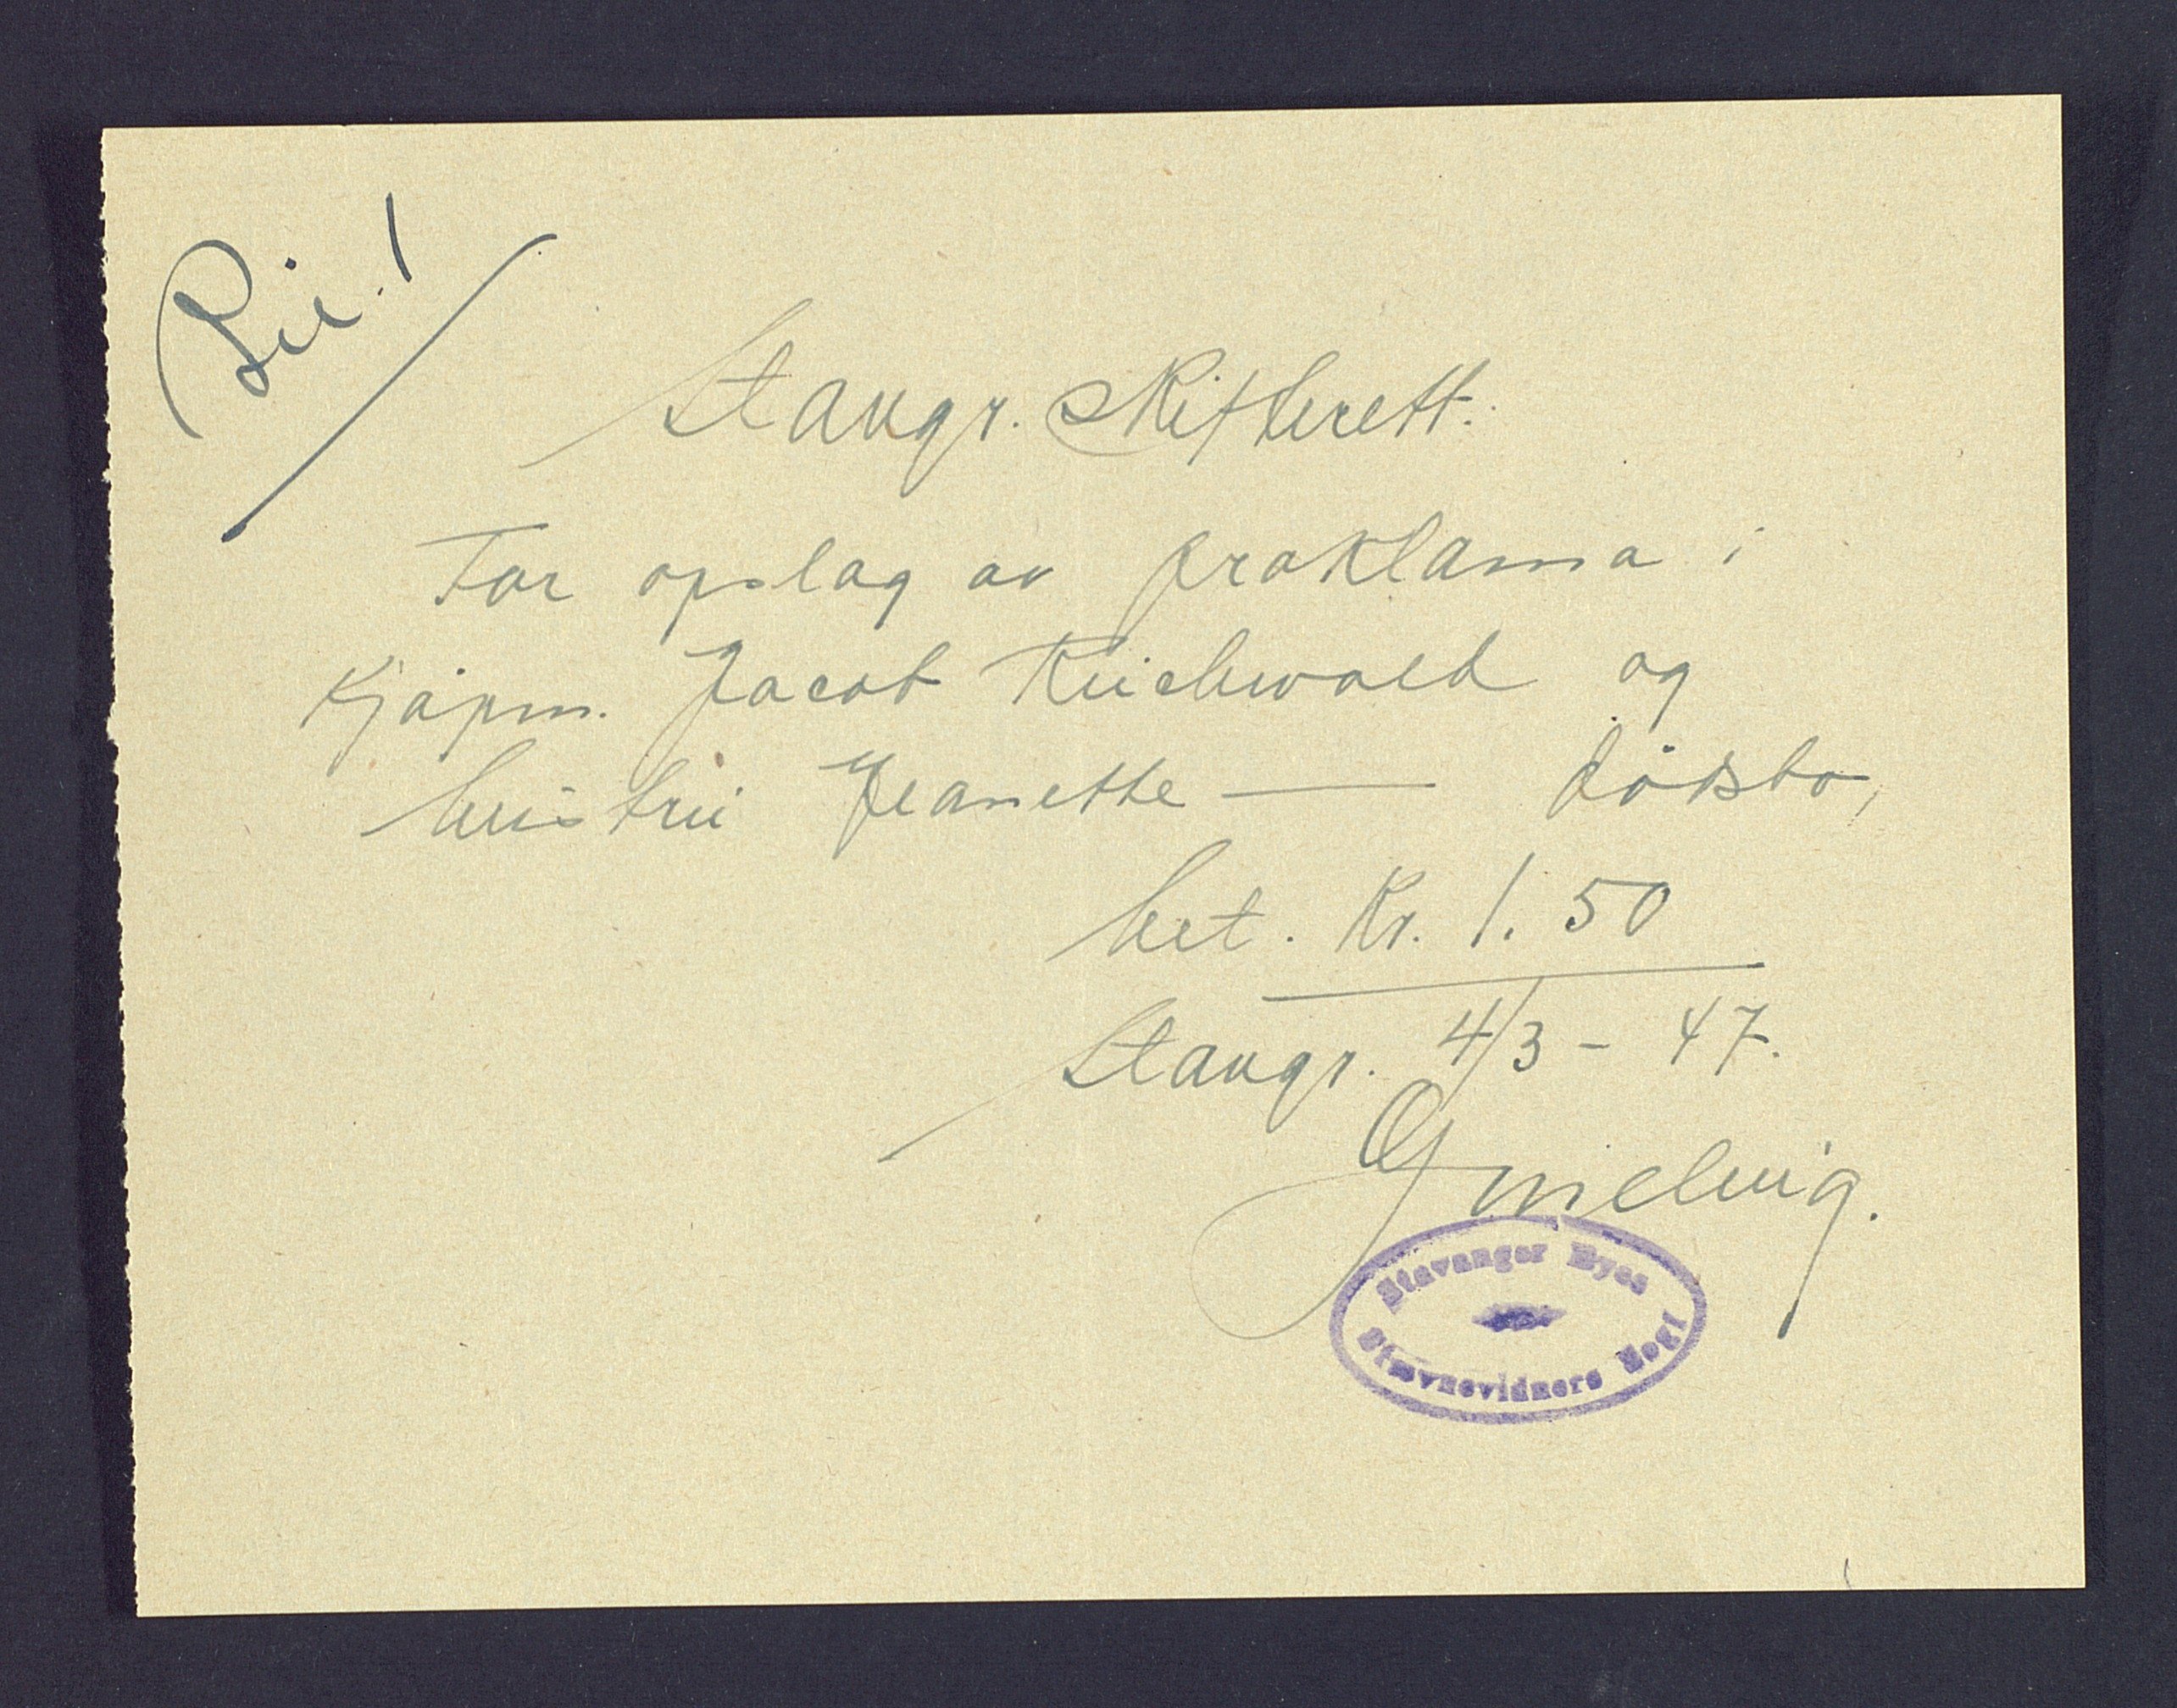 Bil. 1
Stavgr. Skifterett.
For opslag av proklama i
Kjøpm. Jacob Reichwald og
hustru Jeanette — dødsbo,
bet. Kr. 1.50
Stavgr. 4/3 - 47.
Stavanger Byes
Stævnevidners Segl